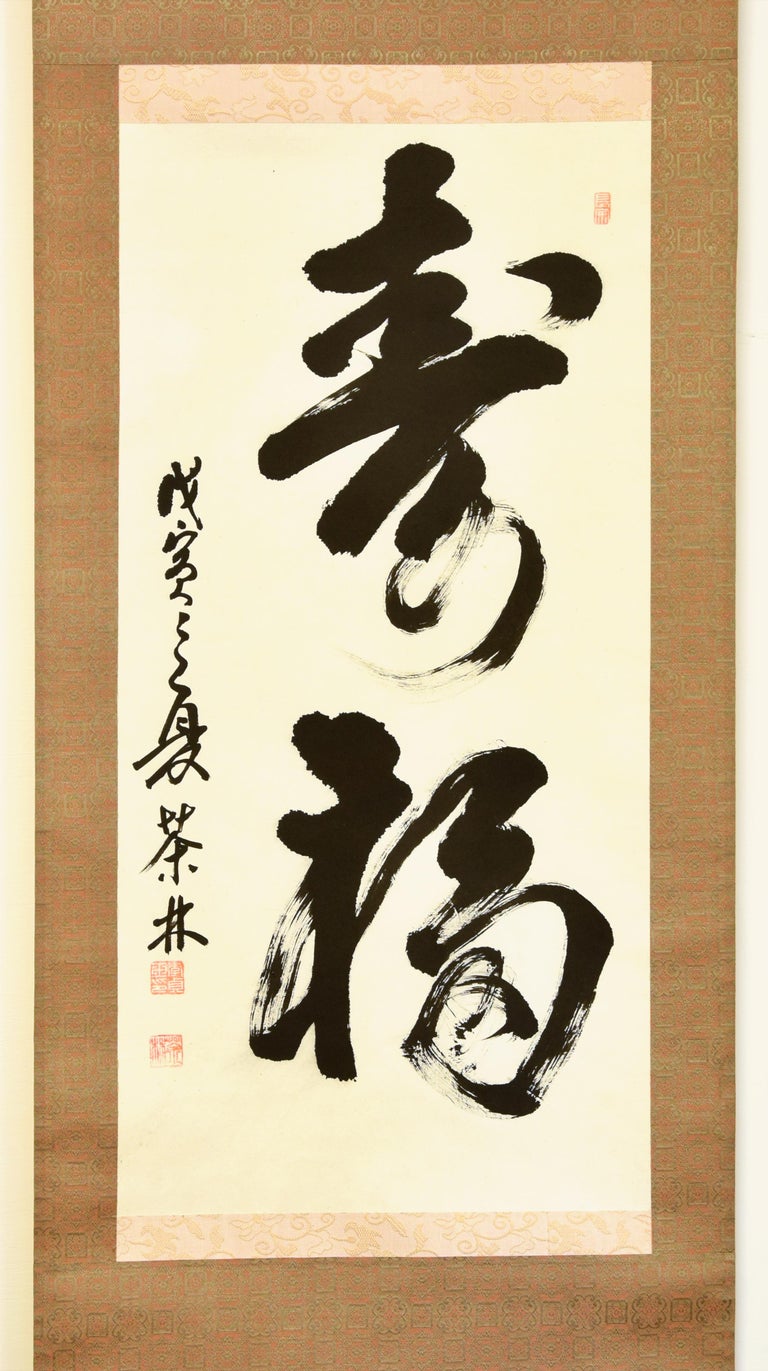 壽福
戊寅之夏 茶林